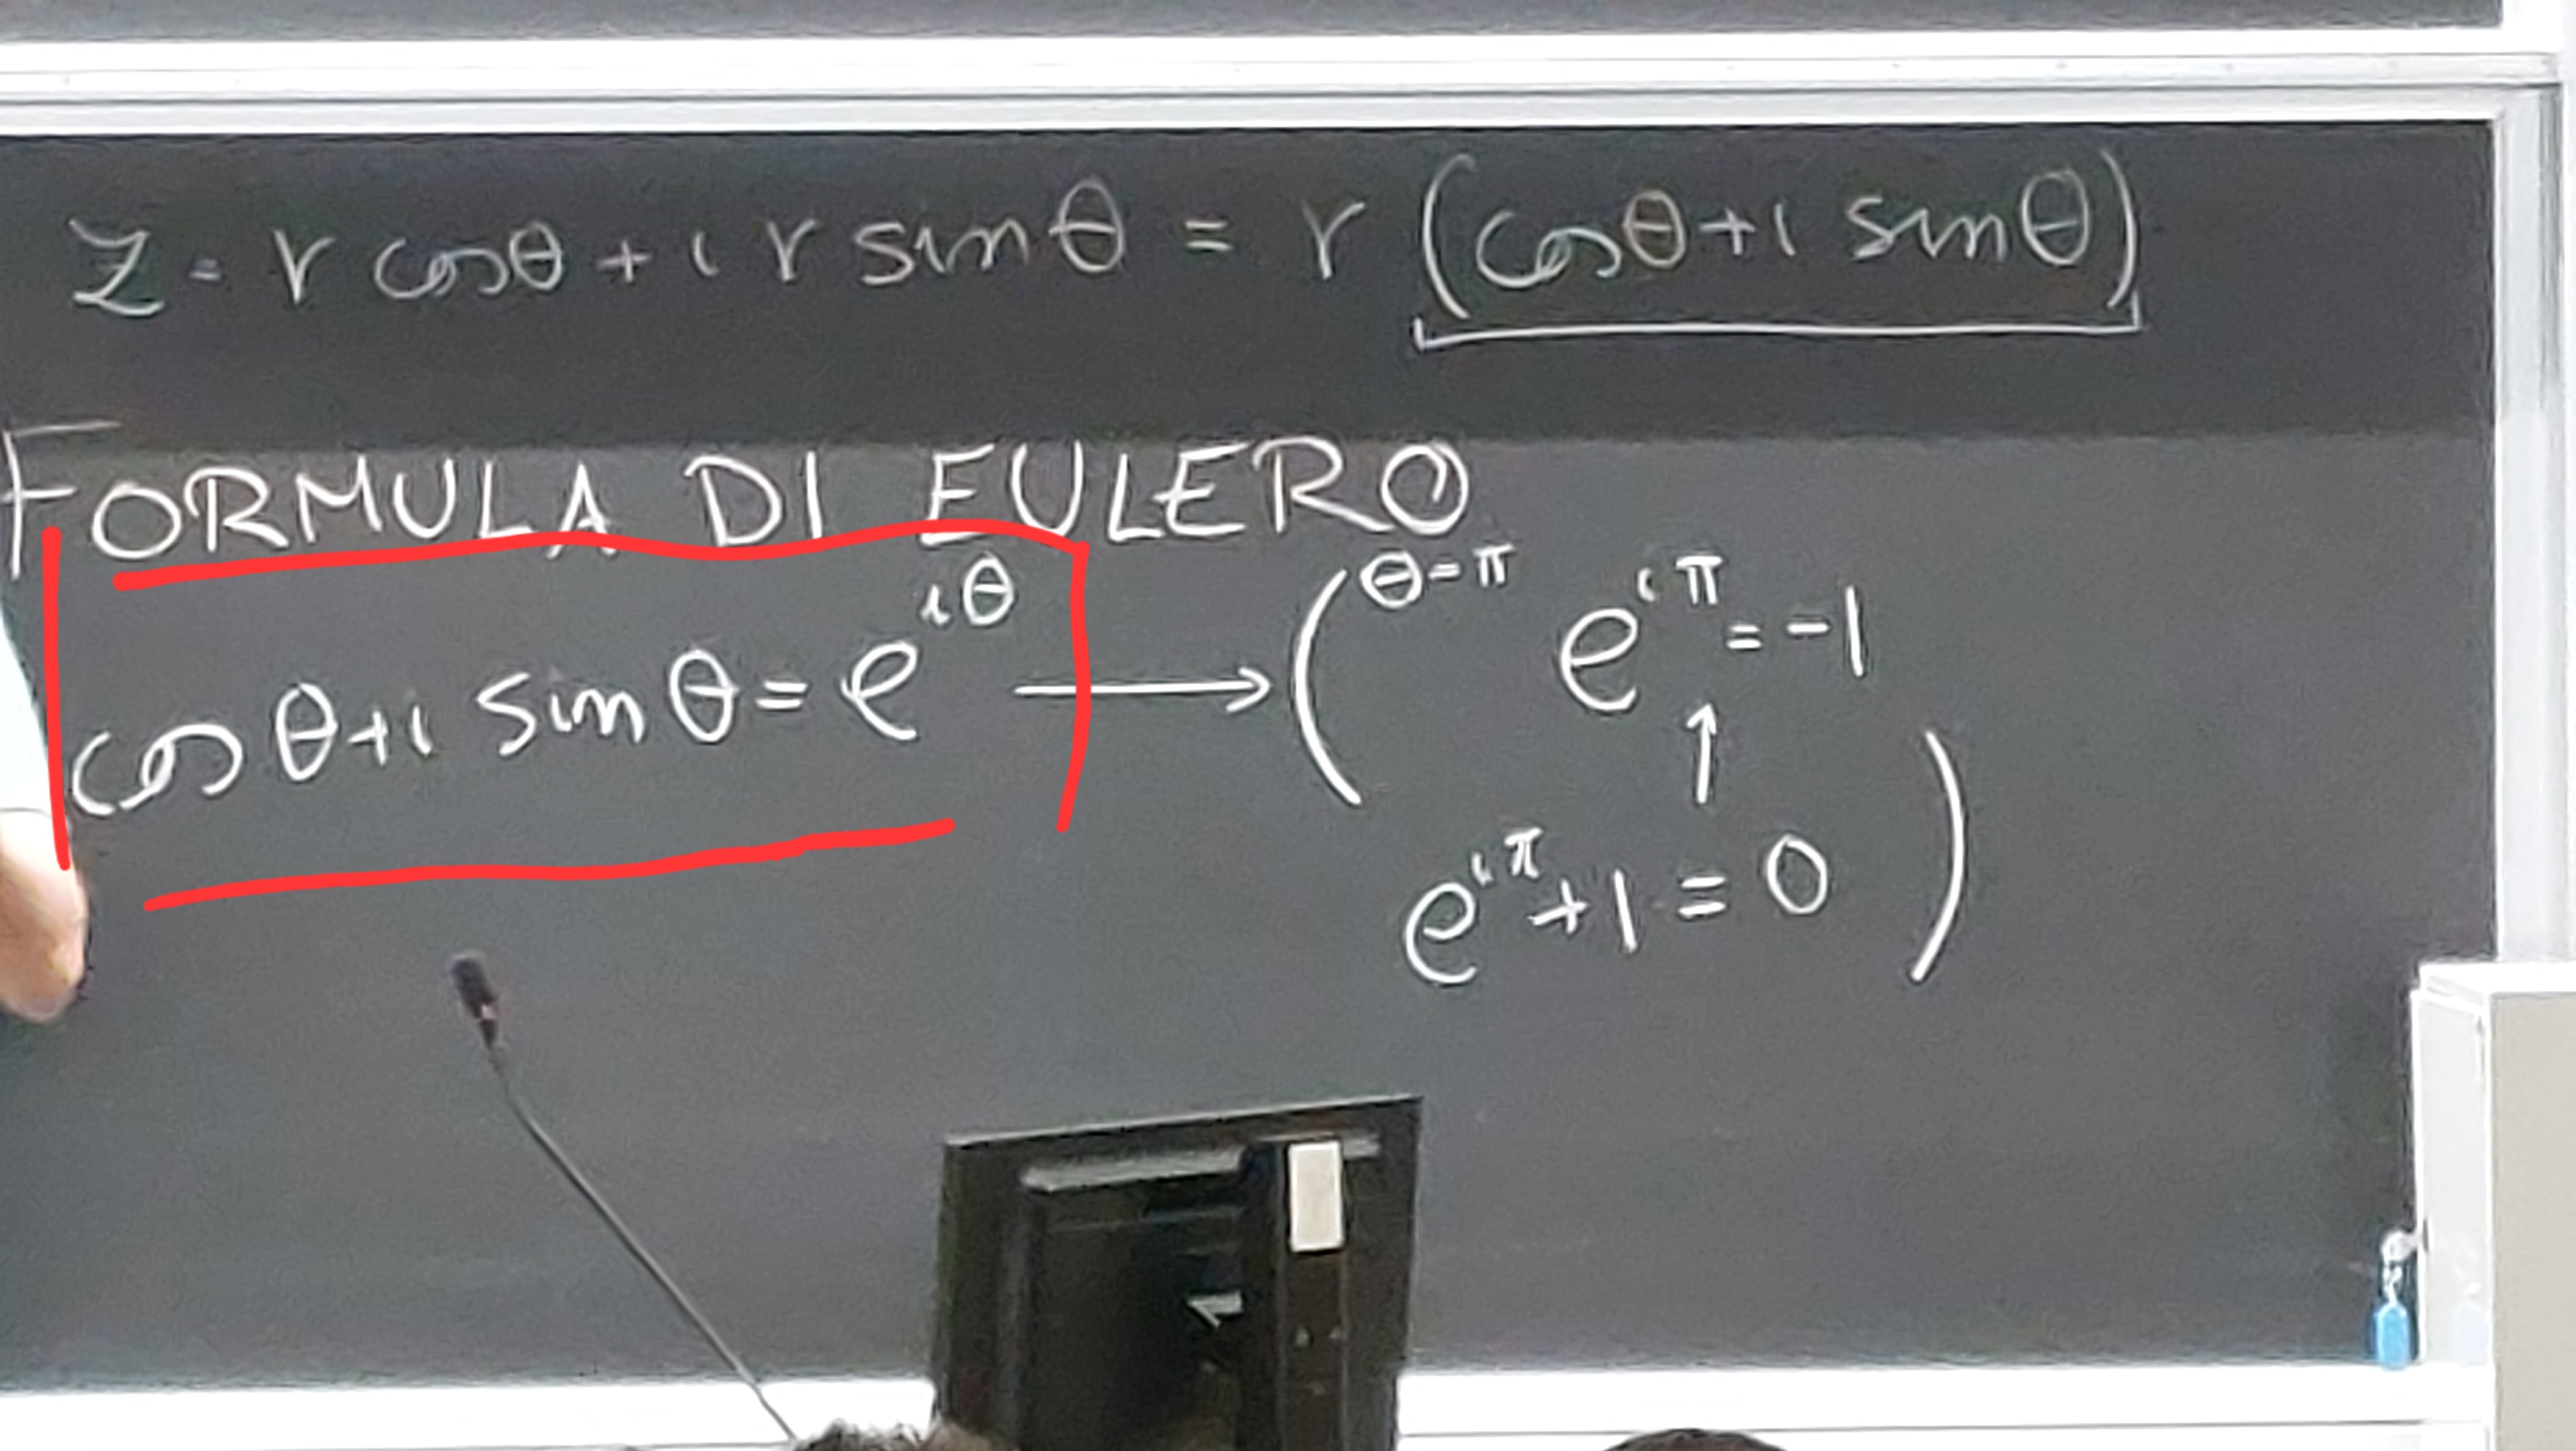 z = r cosθ + i r sinθ = r (cosθ + i sinθ)
FORMULA DI EULERO
cosθ + i sinθ = e^{iθ} ⟶ ( θ=π e^{iπ} = -1
↑
e^{iπ} + 1 = 0 )